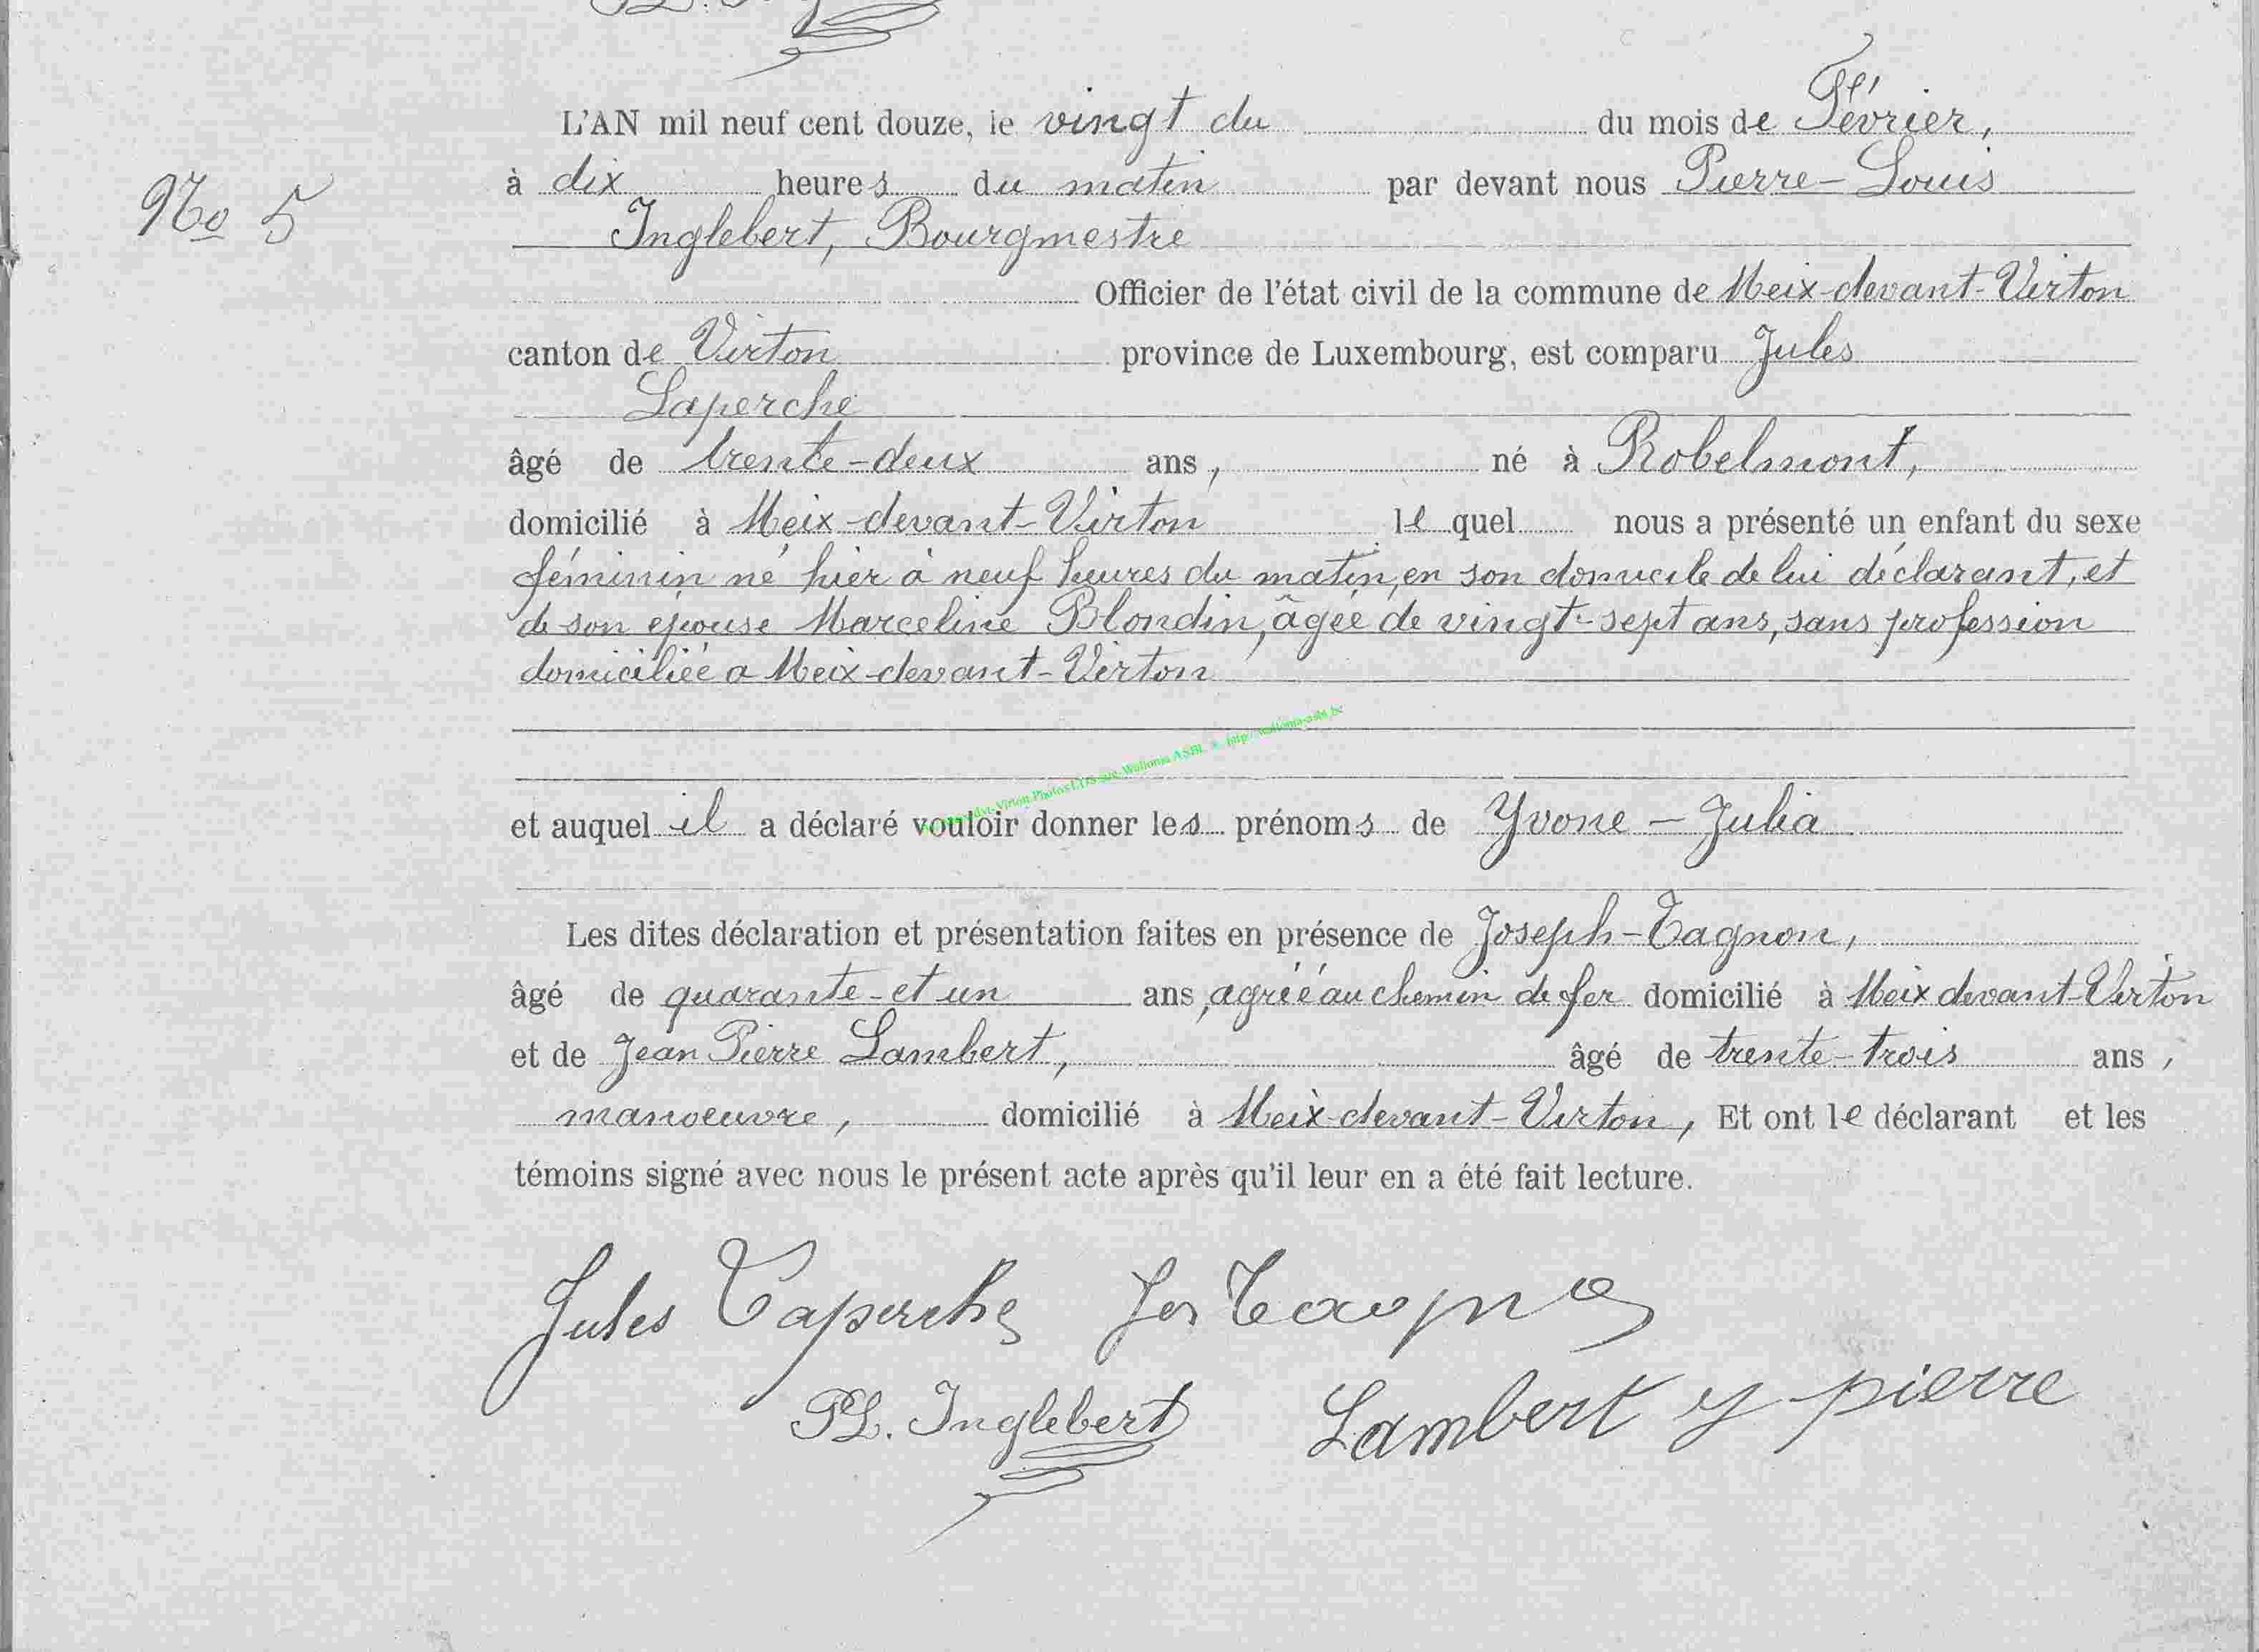 No 5
L'AN mil neuf cent douze, le vingt du du mois de Février,
à dix heures du matin par devant nous Pierre-Louis
Inglebert, Bourgmestre
Officier de l'état civil de la commune de Meix-devant-Virton
canton de Virton province de Luxembourg, est comparu Jules
Laperche
âgé de trente-deux ans, né à Robelmont,
domicilié à Meix-devant-Virton lequel nous a présenté un enfant du sexe
féminin né hier à neuf heures du matin, en son domicile de lui déclarant, et
de son epouse Marceline Blondin, âgée de vingt-sept ans, sans profession
domiciliée a Meix-devant-Virton
et auquel il a déclaré vouloir donner les prénoms de Yvone - Julia
Les dites déclaration et présentation faites en présence de Joseph-Tagnon,
âgé de quarante-et un ans, agréé au chemin de fer domicilié à Meix devant-Virton
et de Jean Pierre Lambert, âgé de trente-trois ans,
manoeuvre, domicilié à Meix-devant-Virton, Et ont le déclarant et les
témoins signé avec nous le présent acte après qu'il leur en a été fait lecture.
Jules Laperche Jos Tagnon
PL. Inglebert Lambert J pierre